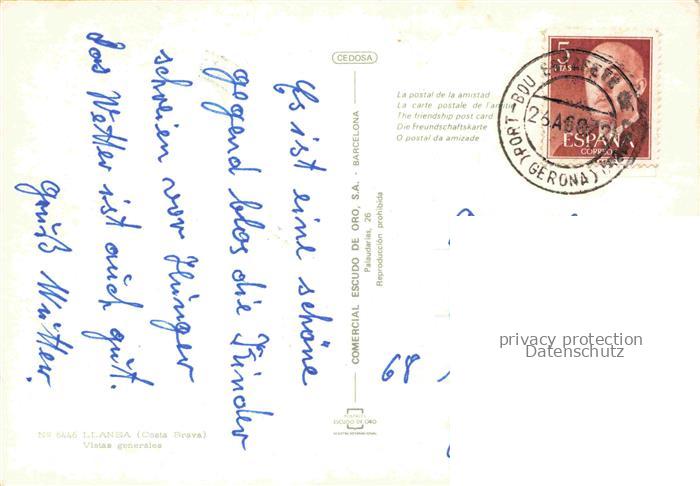 Es ist eine schöne
gegend blos die Kinder
schreien vor Hunger
das Wetter ist auch gut.
gruß Mutter.
CEDOSA
COMERCIAL ESCUDO DE ORO, S.A. - BARCELONA
Palaudarias, 26
Reproducción prohibida
La postal de la amistad
La carte postale de l'amitié
The friendship post card
Die Freundschaftskarte
O postal da amizade
5
PTAS
ESPAÑA
CORREOS
PORT-BOU
(GERONA)
68
privacy protection
Datenschutz
ESCUDO DE ORO
Nº 6446 LLANSA (Costa Brava)
Vistas generales